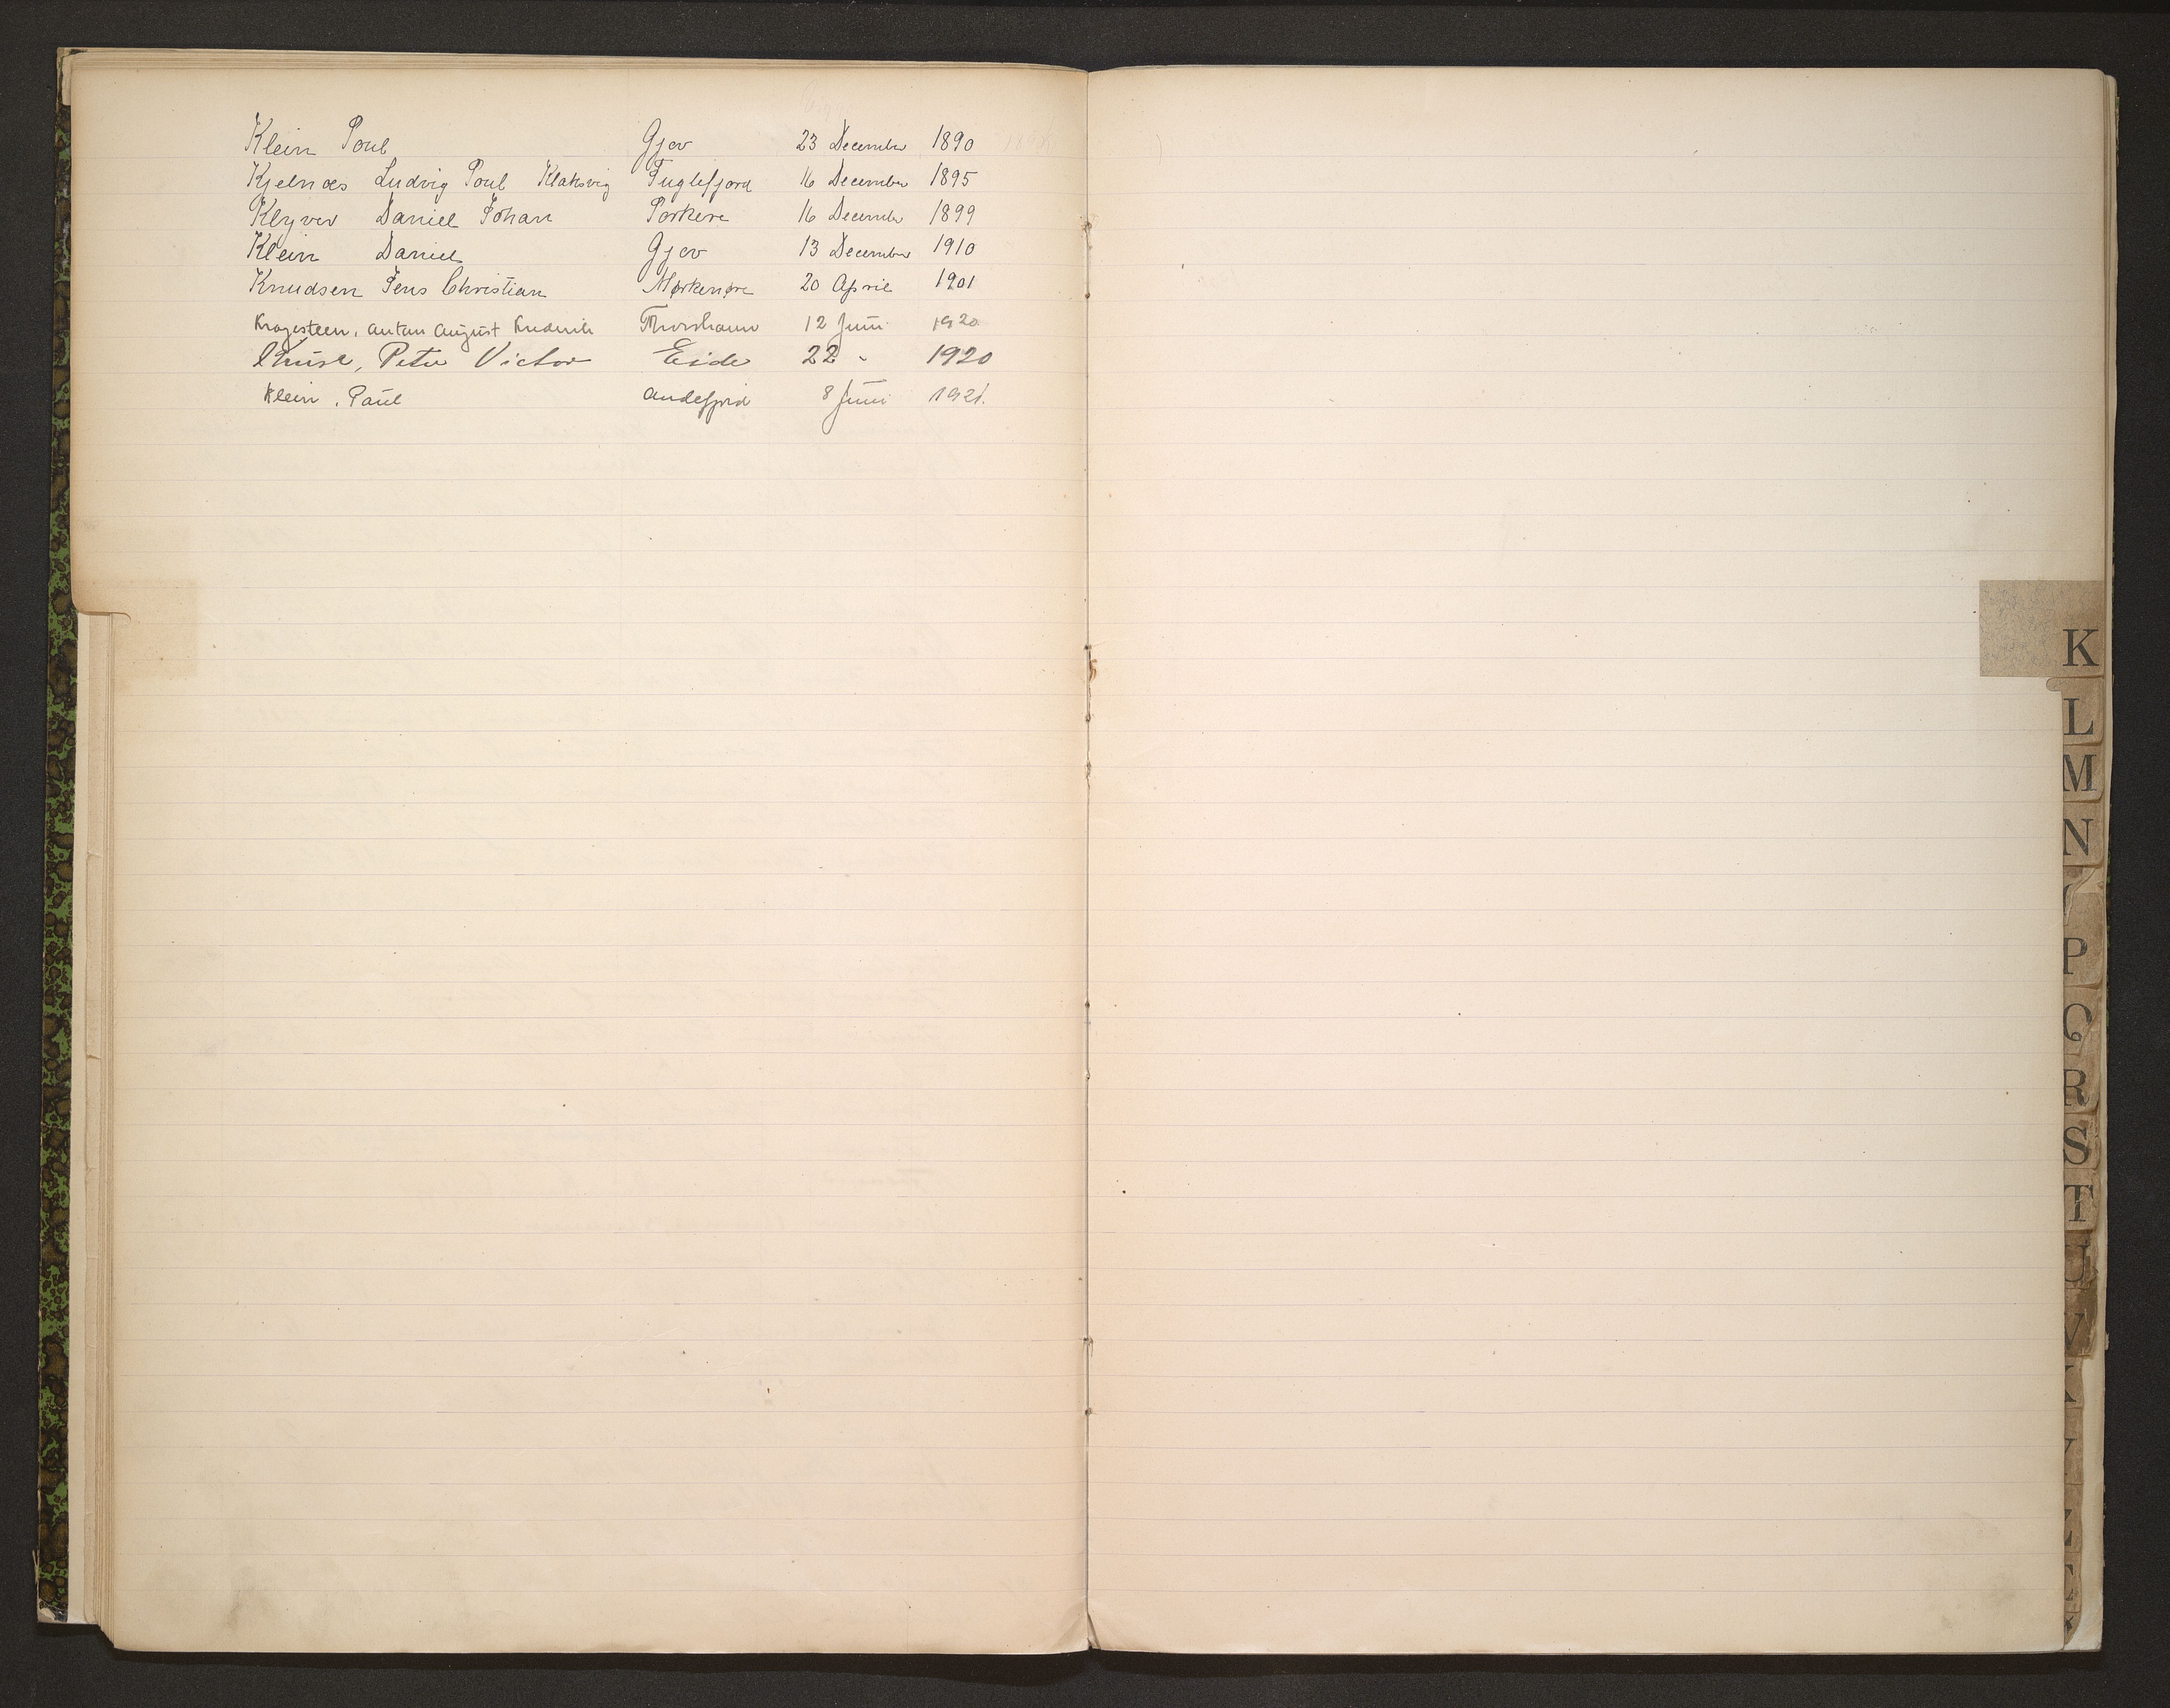 Klein Poul Gjov 23 December 1890
Kjelnæs Ludvig Poul Klaksvig Fuglefjord 16 December 1895
Klyver Daniel Johan Porkere 16 December 1899
Klein Daniel Gjov 13 December 1910
Knudsen Jens Christian Mørkenøre 20 April 1901
Kragesteen, Anton August Frederik Thorshavn 12 Juni 1920
Kruse, Peter Victor Eide 22 " 1920
Klein, Paul Andefjord 8 Juni 1921.
K
L
M
N
P
Q
R
S
T
U
V
X
Y
Z